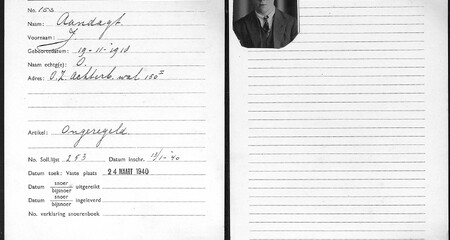 No. 153
Naam: Aandagt.
Voornaam: J.
Geboortedatum: 19-11-1910
Naam echtg(e): O.
Adres: O.Z. Achterb. wal 150 II
Artikel: Ongeregeld.
No. Soll.lijst 253 Datum Inschr. 13/1-'40
Datum toek: Vaste plaats 24 MAART 1940
Datum snoer uitgereikt
bijsnoer
Datum snoer ingeleverd
bijsnoer
No. verklaring snoerenboek